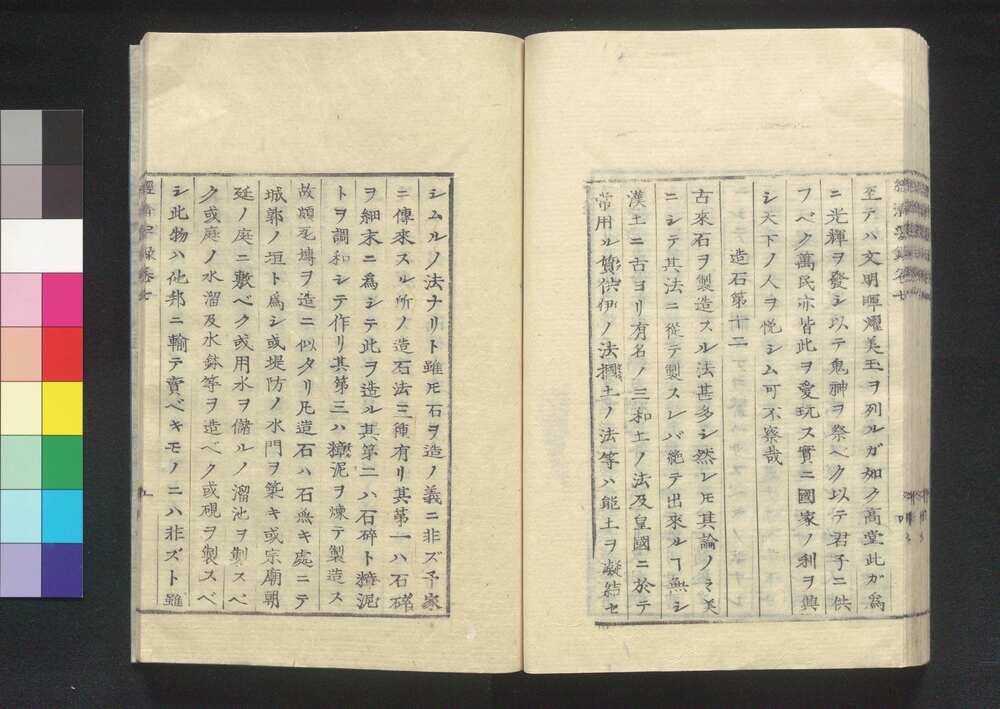 至テハ文明暉燿美玉ヲ列ルガ如ク高堂此ガ爲
ニ光輝ヲ發シ以テ鬼神ヲ祭ベク以テ君子ニ供
フベク萬民亦皆此ヲ愛玩ス實ニ國家ノ利ヲ興
シ天下ノ人ヲ悦シム可不察哉
造石第十二
古來石ヲ製造スル法甚多シ然レ𪜈其論ノミ美
ニシテ其法ニ從テ製スレバ絶テ出來ルヿ無シ
漢土ニ古ヨリ有名ノ三和土ノ法及皇國ニ於テ
常用ル伊ノ法土ノ法等ハ能土ヲ凝結セ
シムルノ法ナリト雖𪜈石ヲ造ノ義ニ非ズ予家
ニ傳來スル所ノ造石法三種有リ其第一ハ石碎
ヲ細末ニ爲シテ此ヲ造ル其第二ハ石碎ト泥
トヲ調和シテ作リ其第三ハ泥ヲ煉テ製造ス
故頗瓦塼ヲ造ニ似タリ凡造石ハ石無キ處ニテ
城郭ノ垣ト爲シ或堤防ノ水門ヲ築キ或宗廟朝
廷ノ庭ニ敷ベク或用水ヲ儲ルノ溜池ヲ製スベ
ク或庭ノ水溜及水鉢等ヲ造ベク或硯ヲ製スベ
シ此物ハ他邦ニ輸テ賣ベキモノニハ非ズト雖